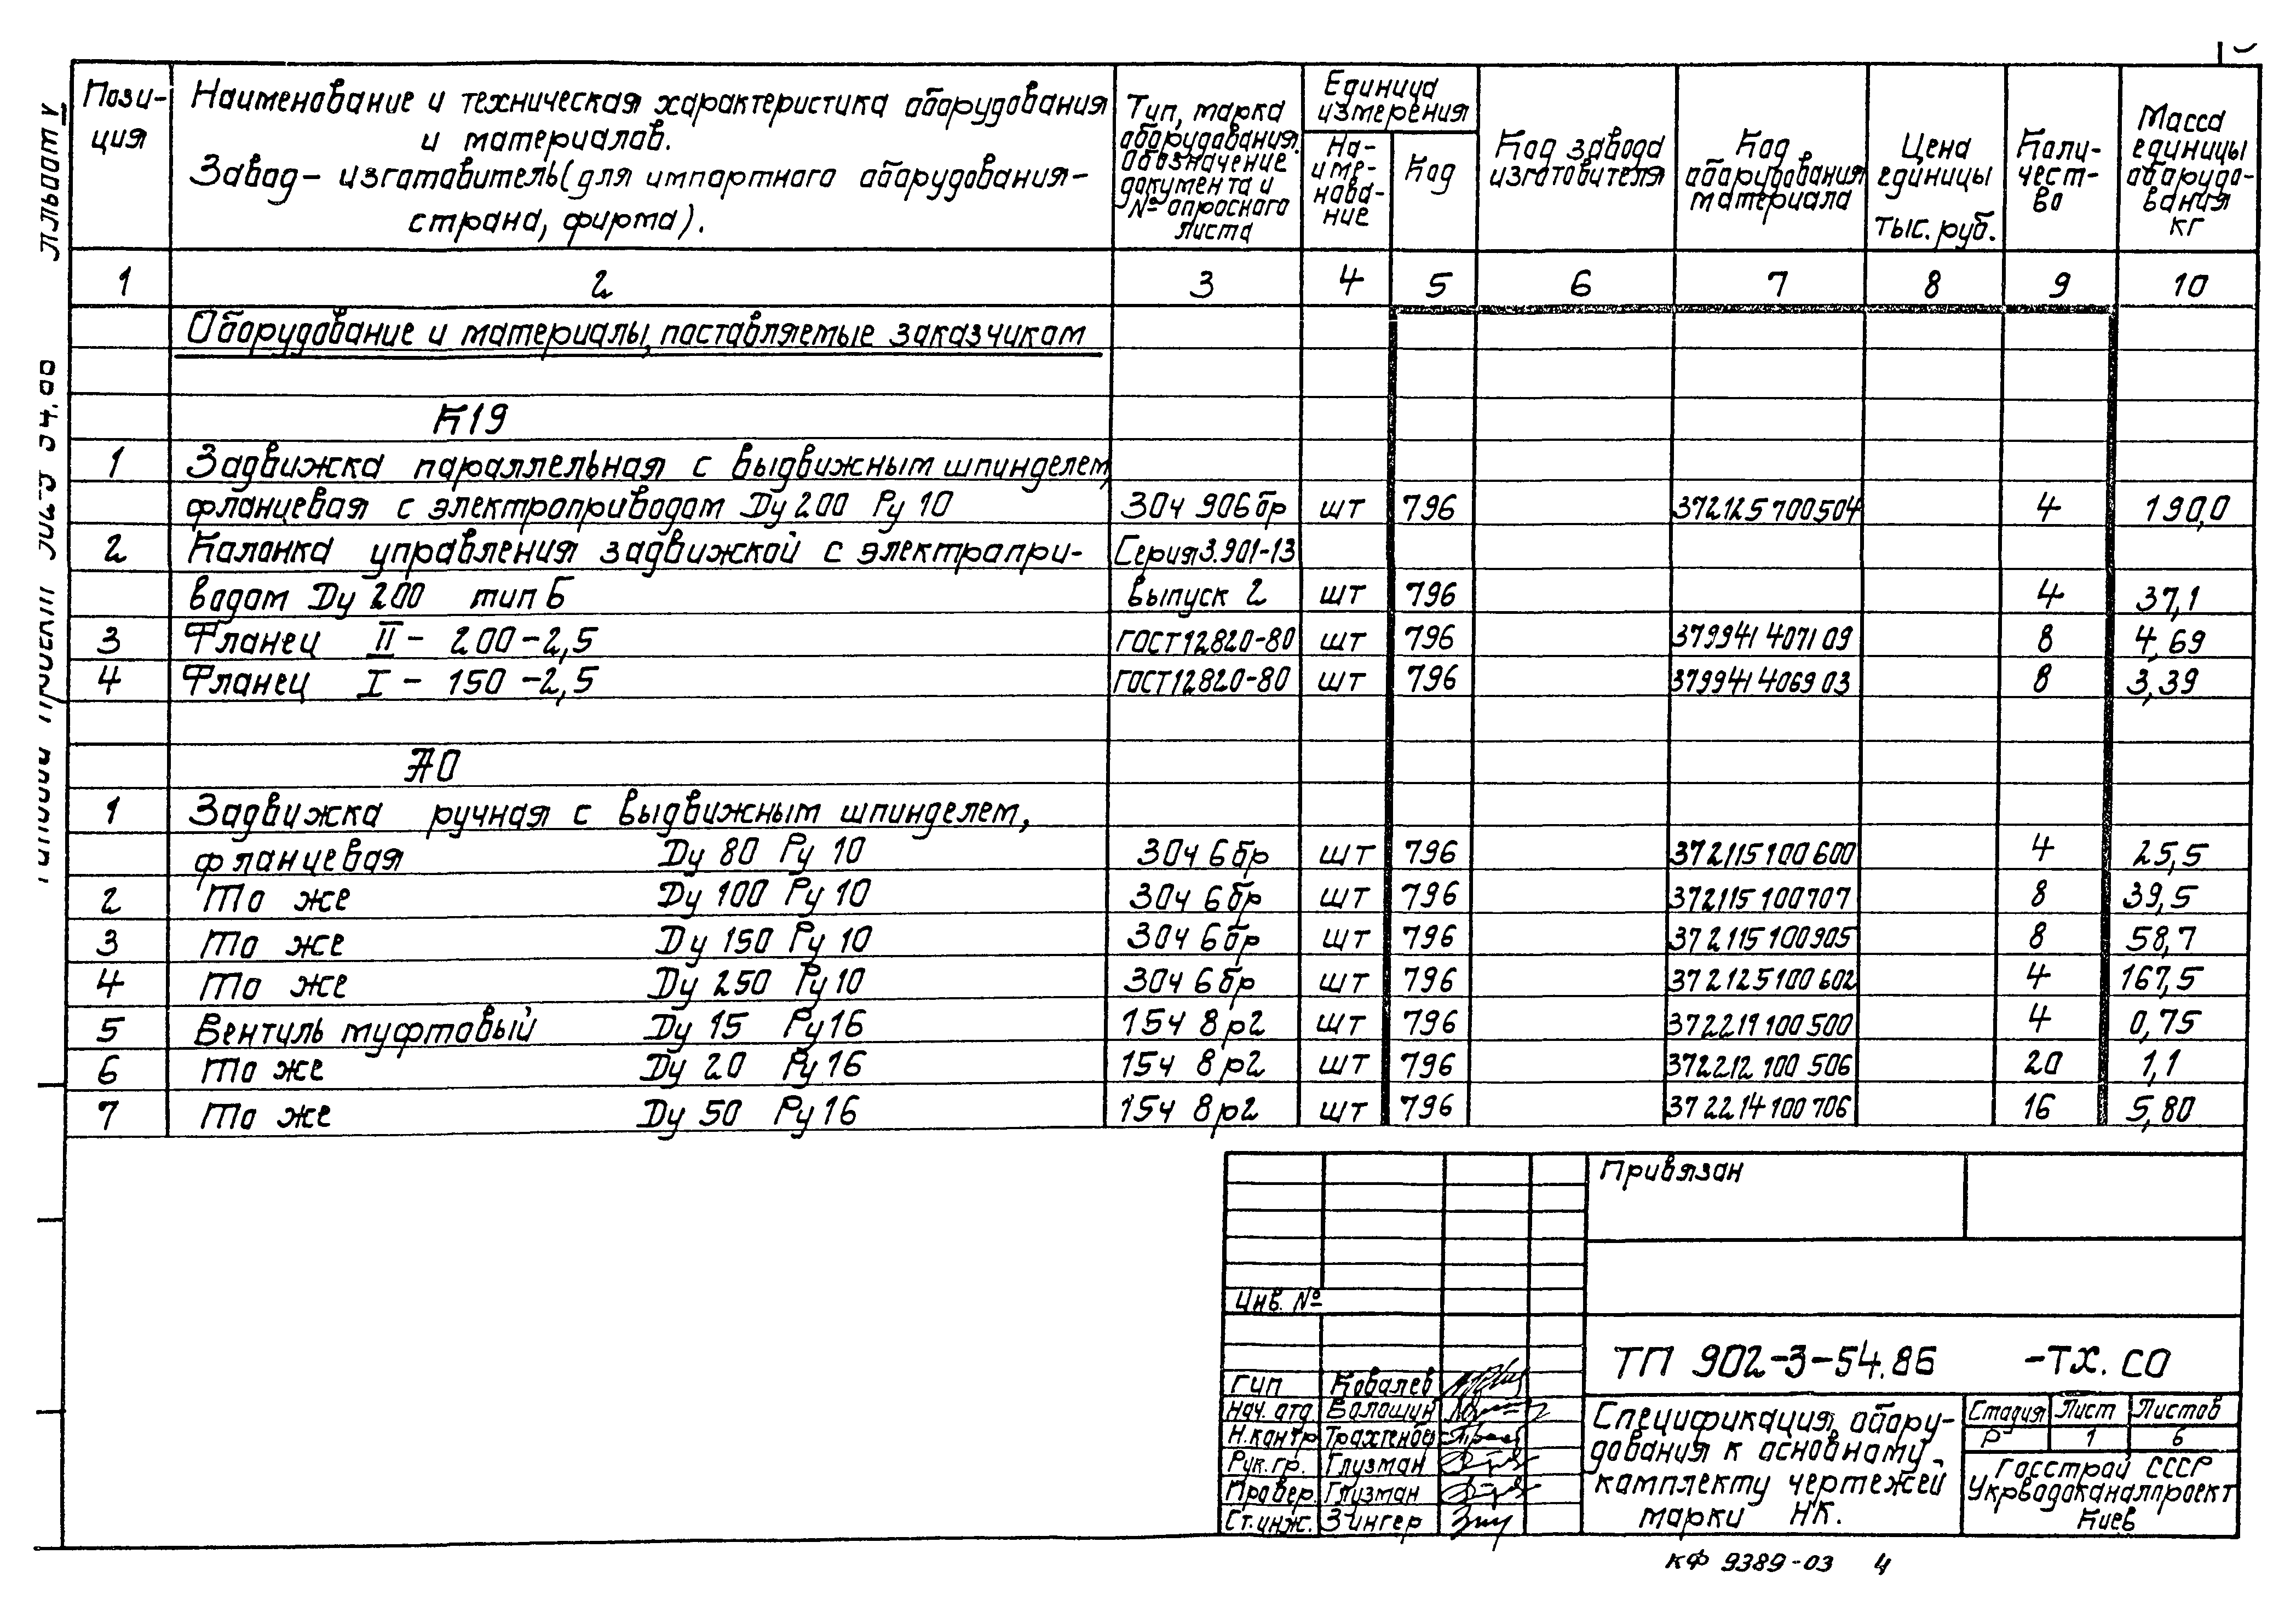 Пози-
ция
Наименование и техническая характеристика оборудования
и материалов.
Завод- изготовитель (для импортного оборудования-
страна, фирма).
Тип, марка
оборудования.
Обозначение
документа и
№ опросного
листа
Единица
измерения
На-
име-
нова-
ние
Код
Код завода
изготовителя
Код
оборудования
материала
Цена
единицы
тыс. руб.
Коли-
чест-
во
Масса
единицы
оборудо-
вания
кг
1 2 3 4 5 6 7 8 9 10
Оборудование и материалы, поставляемые заказчиком
К19
1 Задвижка параллельная с выдвижным шпинделем,
фланцевая с электроприводом Ду 200 Ру 10 30ч 906 бр шт 796 372125 700504 4 190,0
2 Колонка управления задвижкой с электропри- Серия 3.901-13
водом Ду 200 тип Б выпуск 2 шт 796 4 37,1
3 Фланец II - 200 - 2,5 ГОСТ 12820-80 шт 796 379941 407109 8 4,69
4 Фланец I - 150 - 2,5 ГОСТ 12820-80 шт 796 379941 406903 8 3,39
А0
1 Задвижка ручная с выдвижным шпинделем,
фланцевая Ду 80 Ру 10 30ч 6 бр шт 796 372115 100600 4 25,5
2 То же Ду 100 Ру 10 30ч 6 бр шт 796 372115 100707 8 39,5
3 То же Ду 150 Ру 10 30ч 6 бр шт 796 372115 100905 8 58,7
4 То же Ду 250 Ру 10 30ч 6 бр шт 796 372125 100602 4 167,5
5 Вентиль муфтовый Ду 15 Ру 16 15ч 8 р2 шт 796 372211 100500 4 0,75
6 То же Ду 20 Ру 16 15ч 8 р2 шт 796 372212 100 506 20 1,1
7 То же Ду 50 Ру 16 15ч 8 р2 шт 796 372214 100 706 16 5,80
Альбом V
Привязан
Инв. №
ТП 902-3-54.86 -ТХ. СО
ГИП Ковалев
Нач. отд Волошин
Н. контр
Рук. гр. Глузман
Провер. Глузман
Ст. инж. Зингер
Спецификация обору-
дования к основному
комплекту чертежей
марки НК.
Стадия Лист Листов
Р 1 6
Госстрой СССР
Укрводоканалпроект
Киев
КФ 9389-03 4